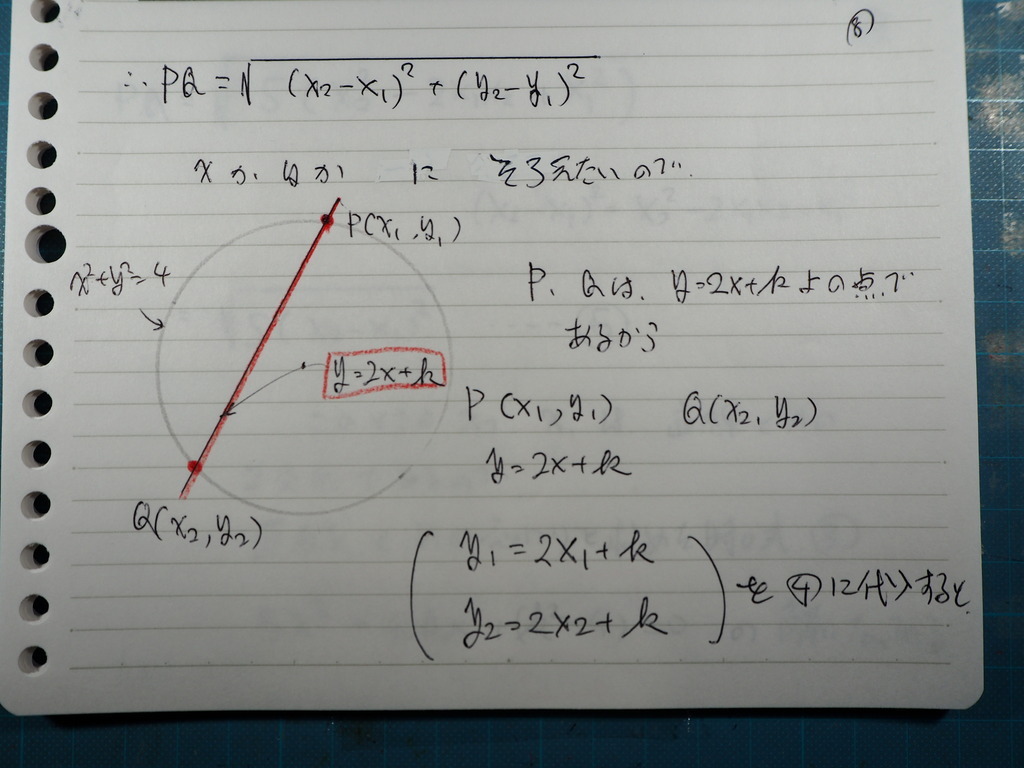 ⑧
∴ PQ = √(x₂-x₁)² + (y₂-y₁)²
xか yか に そろえたいので
P(x₁, y₁)
x²+y²=4
P、Qは、y=2x+k上の点で
あるから
y=2x+k
P(x₁, y₁) Q(x₂, y₂)
y=2x+k
Q(x₂, y₂)
y₁=2x₁+k
y₂=2x₂+k
を ④に代入すると、